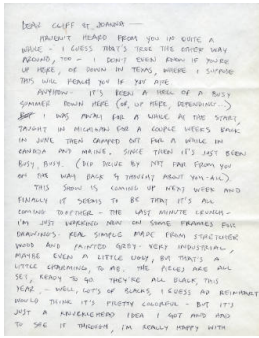 DEAR CLIFF AT JOANNA—
HAVEN'T HEARD FROM YOU IN QUITE A
WHILE - I GUESS THAT'S TRUE THE OTHER WAY
AROUND, TOO - I DON'T EVEN KNOW IF YOU'RE
UP HERE, OR DOWN IN TEXAS, WHERE I SUPPOSE
THIS WILL REACH YOU IF YOU ARE.
ANYHOW - IT'S BEEN A HELL OF A BUSY
SUMMER DOWN HERE (OR, UP HERE, DEPENDING..)
I WAS AWAY FOR A WHILE AT THE START,
TAUGHT IN MICHIGAN FOR A COUPLE WEEKS BACK
IN JUNE THEN CAMPED OUT FOR A WHILE IN
CANADA AND MAINE, SINCE THEN IT'S JUST BEEN
BUSY, BUSY. (DID DRIVE BY NOT FAR FROM YOU
ON THE WAY BACK & THOUGHT ABOUT YOU-ALL)
THIS SHOW IS COMING UP NEXT WEEK AND
FINALLY IT SEEMS TO BE THAT IT'S ALL
COMING TOGETHER - THE LAST MINUTE CRUNCH -
I'M JUST WORKING NOW ON SOME FRAMES FOR
DRAWINGS. REAL SIMPLE MADE FROM STRETCHER
WOOD AND PAINTED GREY - VERY INDUSTRIAL,
MAYBE EVEN A LITTLE UGLY, BUT THAT'S A
LITTLE CHARMING, TO ME. THE PIECES ARE ALL
SET, READY TO GO THEY'RE ALL BLACK, THIS
YEAR. - WELL, LOTS OF BLACKS, I GUESS AD REINHARDT
WOULD THINK IT'S PRETTY COLORFUL - BUT IT'S
JUST A KNUCKLEHEAD IDEA I GOT AND HAD
TO SEE IT THROUGH, I'M REALLY HAPPY WITH